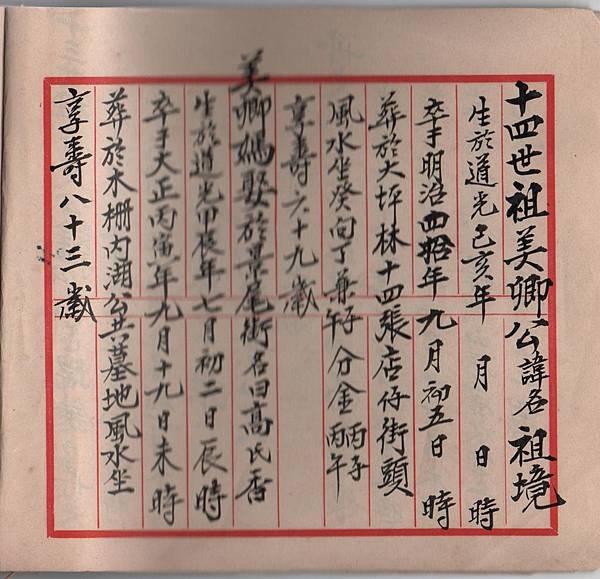 十四世祖美卿公諱名祖境
生於道光己亥年 月 日 時
卒于明治四拾年九月初五日 時
葬於大坪林十四張店仔街頭
風水坐癸向丁兼子午分金丙子丙午
享壽六十九歲
美卿媽娶於景尾街名曰高氏香
生於道光甲辰年七月初二日辰時
卒于大正丙寅年九月十九日未時
葬於木柵內湖公共墓地風水坐
享壽八十三歲